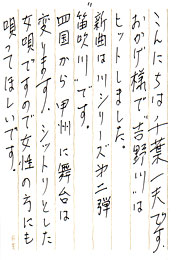 こんにちは千葉一夫です。
おかげ様で"吉野川"は
ヒットしました。
新曲は川シリーズ第二弾
"笛吹川"です。
四国から甲州に舞台は
変ります!、シットリとした
女唄ですので女性の方にも
唄ってほしいです。